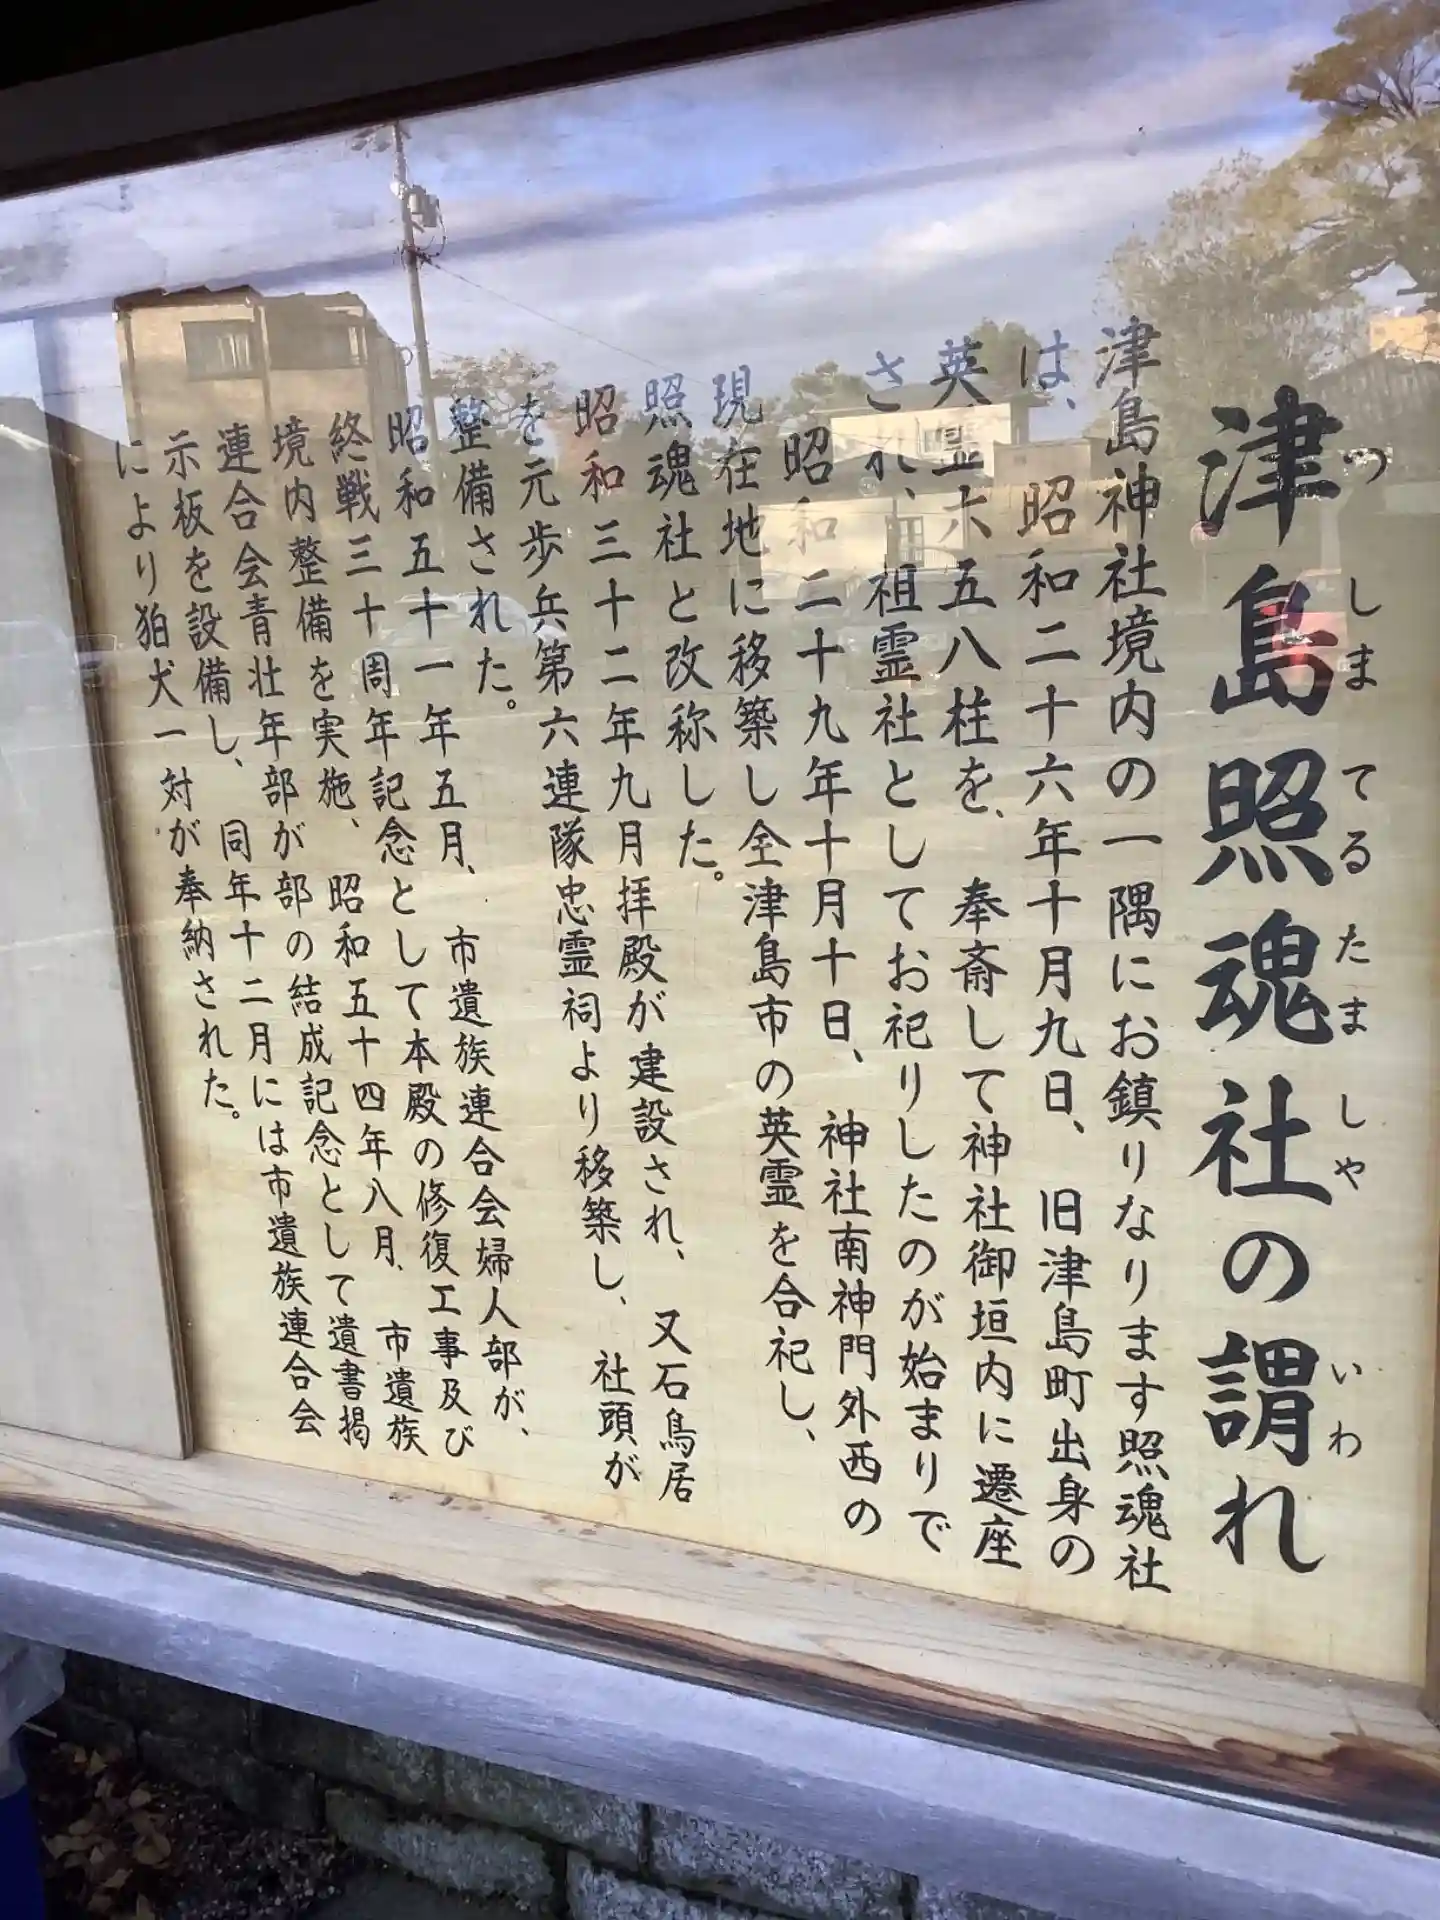 津島照魂社の謂れ
つしまてるたましゃいわ
津島神社境内の一隅にお鎮りなります照魂社
は、昭和二十六年十月九日、旧津島町出身の
英霊六五八柱を、奉斎して神社御垣内に遷座
され、祖霊社としてお祀りしたのが始まりで
昭和二十九年十月十日、神社南神門外西の
現在地に移築し全津島市の英霊を合祀し、
照魂社と改称した。
昭和三十二年九月拝殿が建設され、又石鳥居
を元歩兵第六連隊忠霊祠より移築し、社頭が
整備された。
昭和五十一年五月、市遺族連合会婦人部が、
終戦三十周年記念として本殿の修復工事及び
境内整備を実施、昭和五十四年八月、市遺族
連合会青壮年部が部の結成記念として遺書掲
示板を設備し、同年十二月には市遺族連合会
により狛犬一対が奉納された。